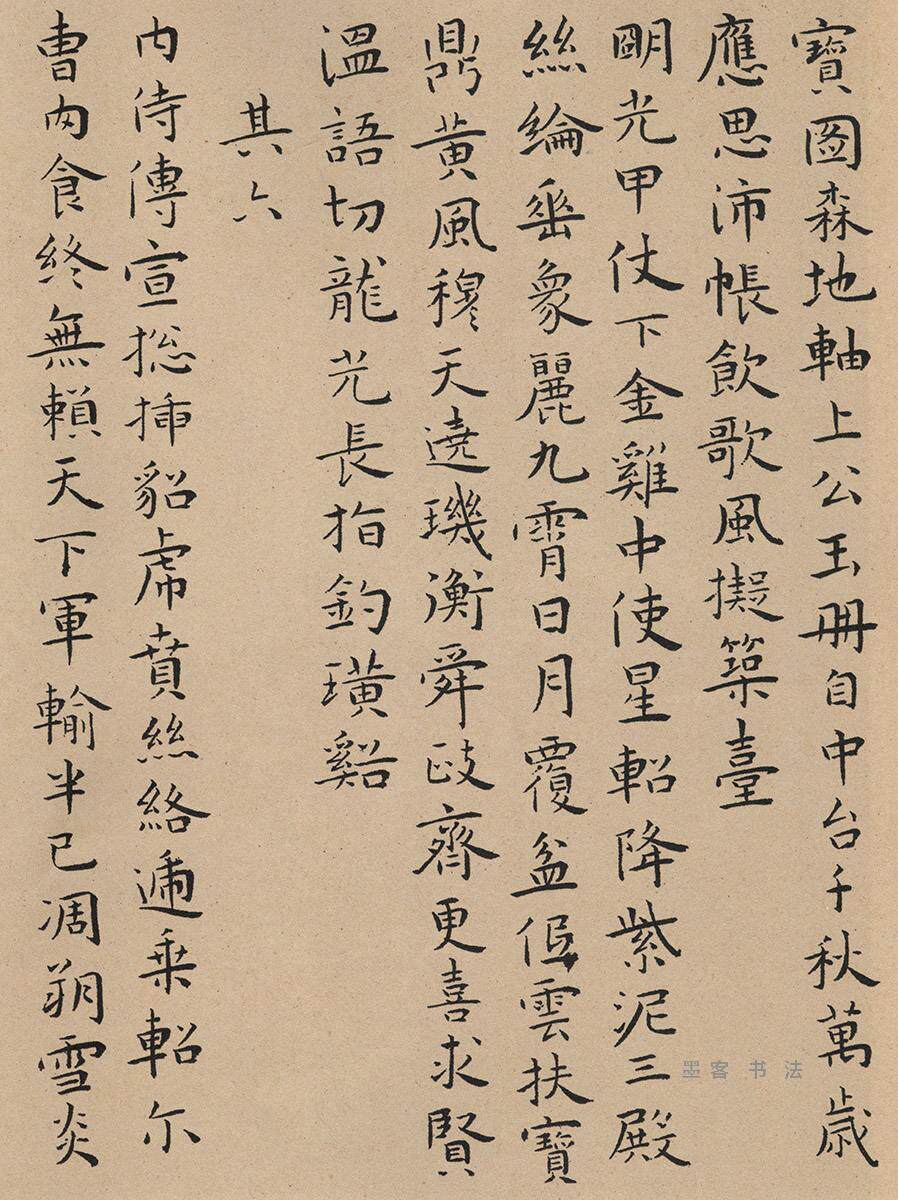 寶圖森地軸上公玉冊自中台千秋萬歲
應思沛帳飲歌風擬築臺
明光甲仗下金雞中使星軺降紫泥三殿
絲綸垂象麗九霄日月覆盆低雲扶寶
鼎黃風穆天遶璣衡舜政齊更喜求賢
溫語切龍光長指釣璜谿
其六
內侍傳宣總插貂虎賁絲絡遞乘軺尔
曹肉食終無賴天下軍輸半已凋朔雪炎
墨客书法